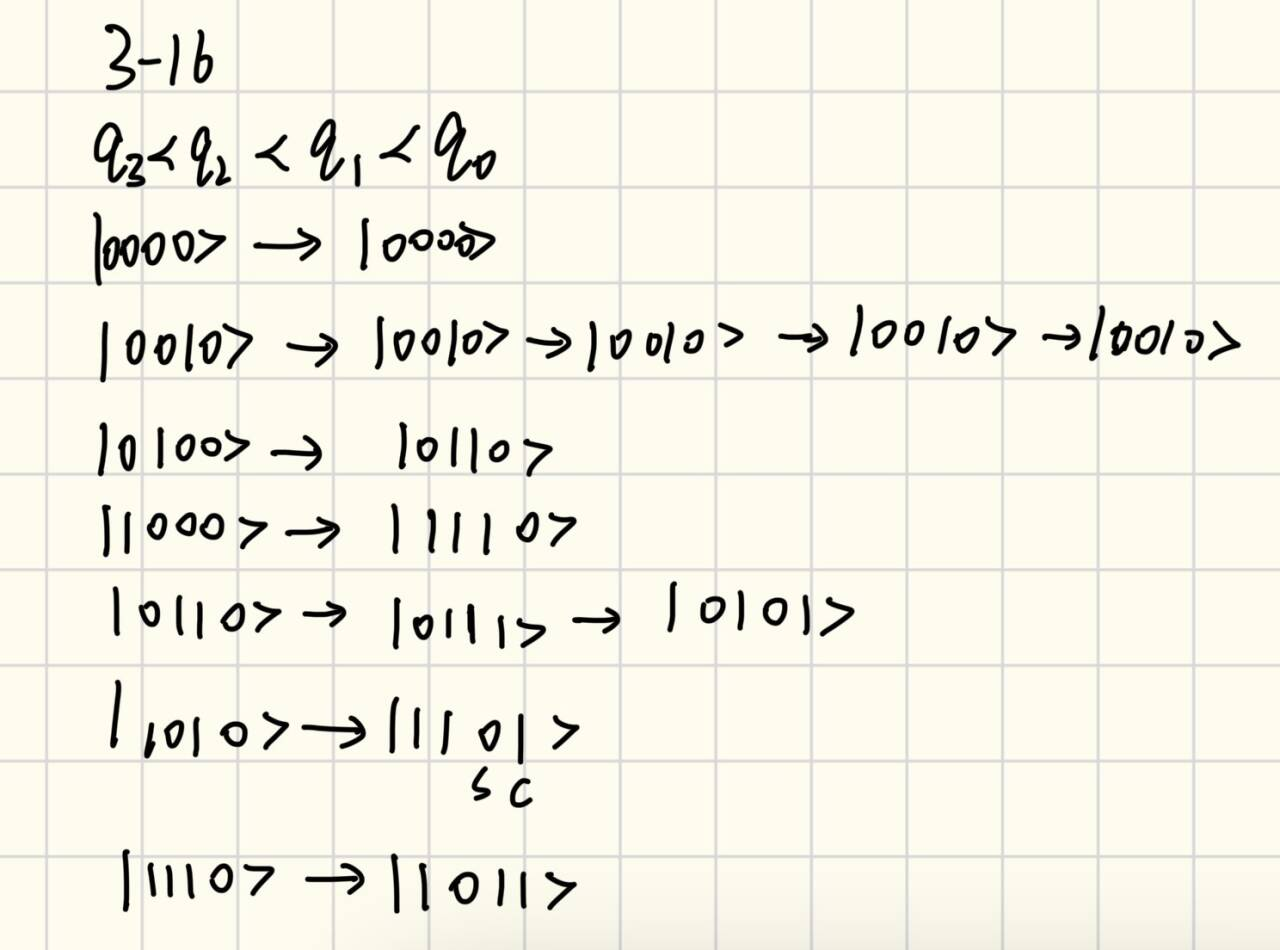 3-16
q₃ < q₂ < q₁ < q₀
|0000> → |0000>
|0010> → |0010> → |0010> → |0010> → |0010>
|0100> → |0110>
|1000> → |1110>
|0110> → |0111> → |0101>
|1010> → |1101>
S C
|1110> → |1011>